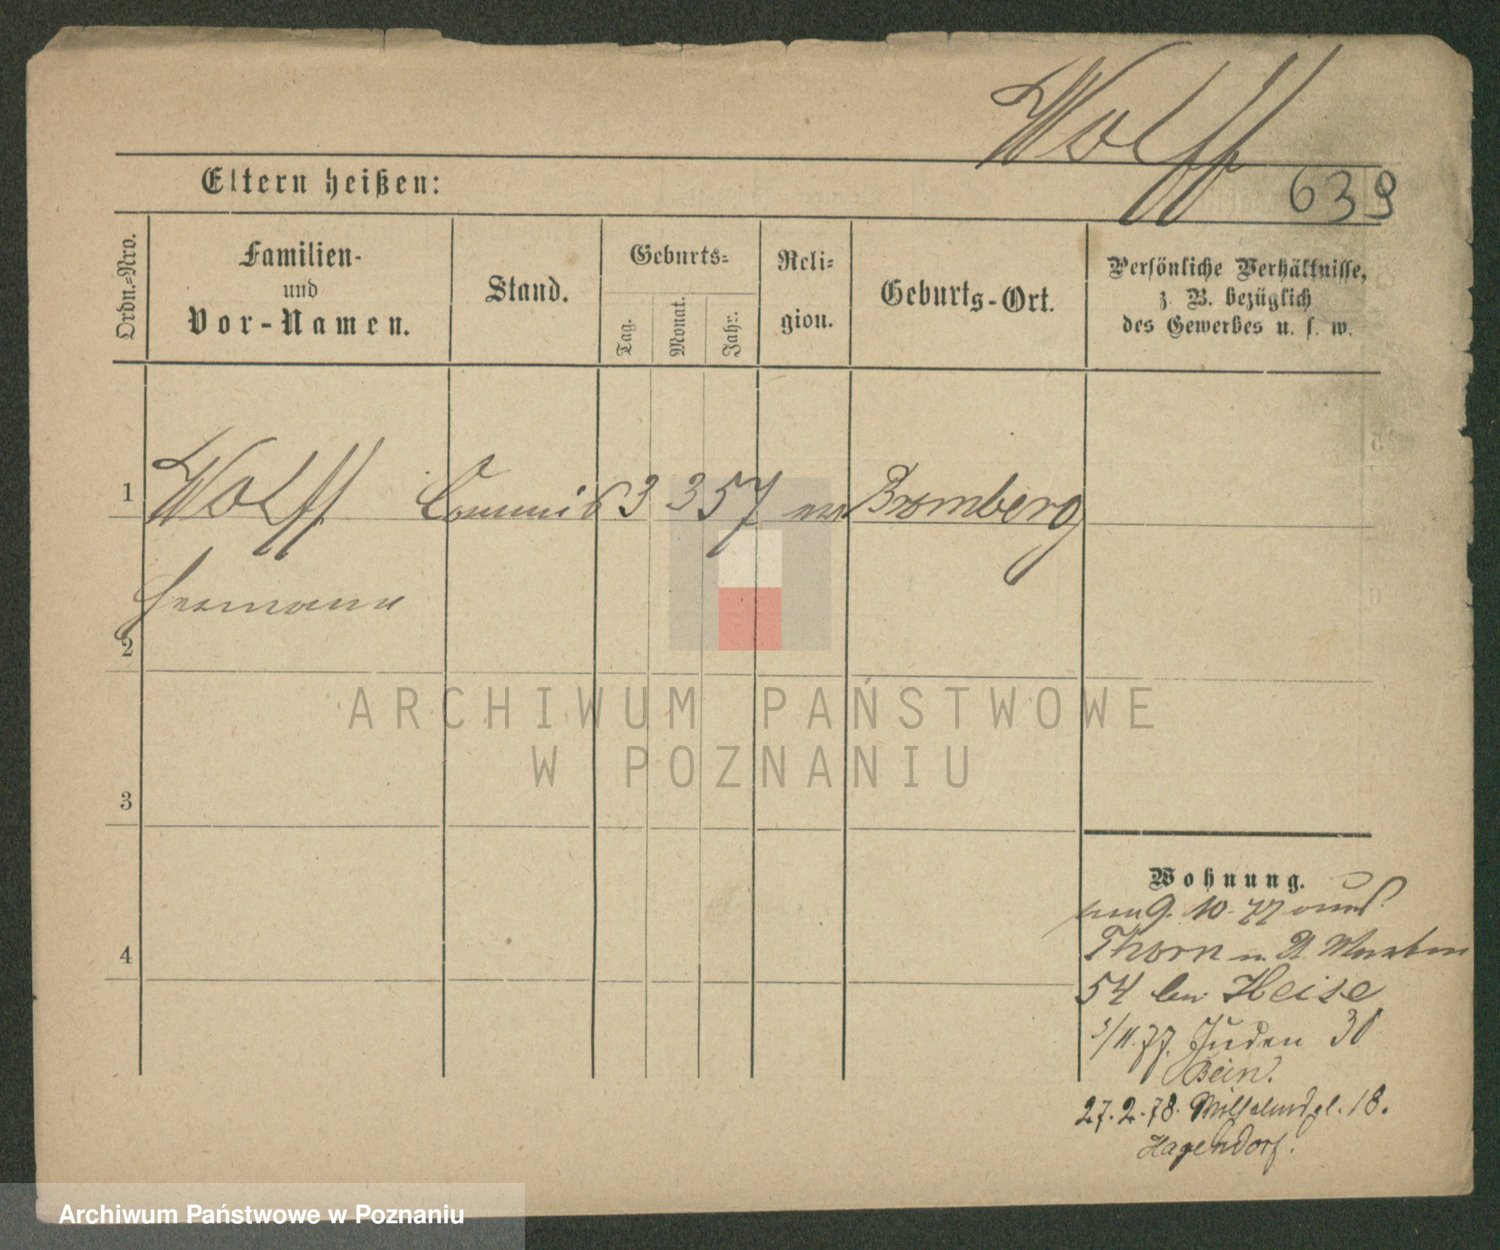 Wolff
Eltern heißen:
639
Ordn.=Nro.
Familien-
und
Vor-Namen.
Stand.
Geburts=
Tag.
Monat.
Jahr.
Reli=
gion.
Geburts-Ort.
Persönliche Verhältnisse,
z. B. bezüglich
des Gewerbes u. s. w.
1 Wolff Commis 3 3 57 Bromberg
Hermann
2
3
4
Wohnung.
9. 10. 77
Thorn
54 bei Heise
3/11. 77. Juden 30
Bein.
27. 2. 78. Wilhelmspl. 18.
Hagendorf.
ARCHIWUM PAŃSTWOWE
W POZNANIU
Archiwum Państwowe w Poznaniu